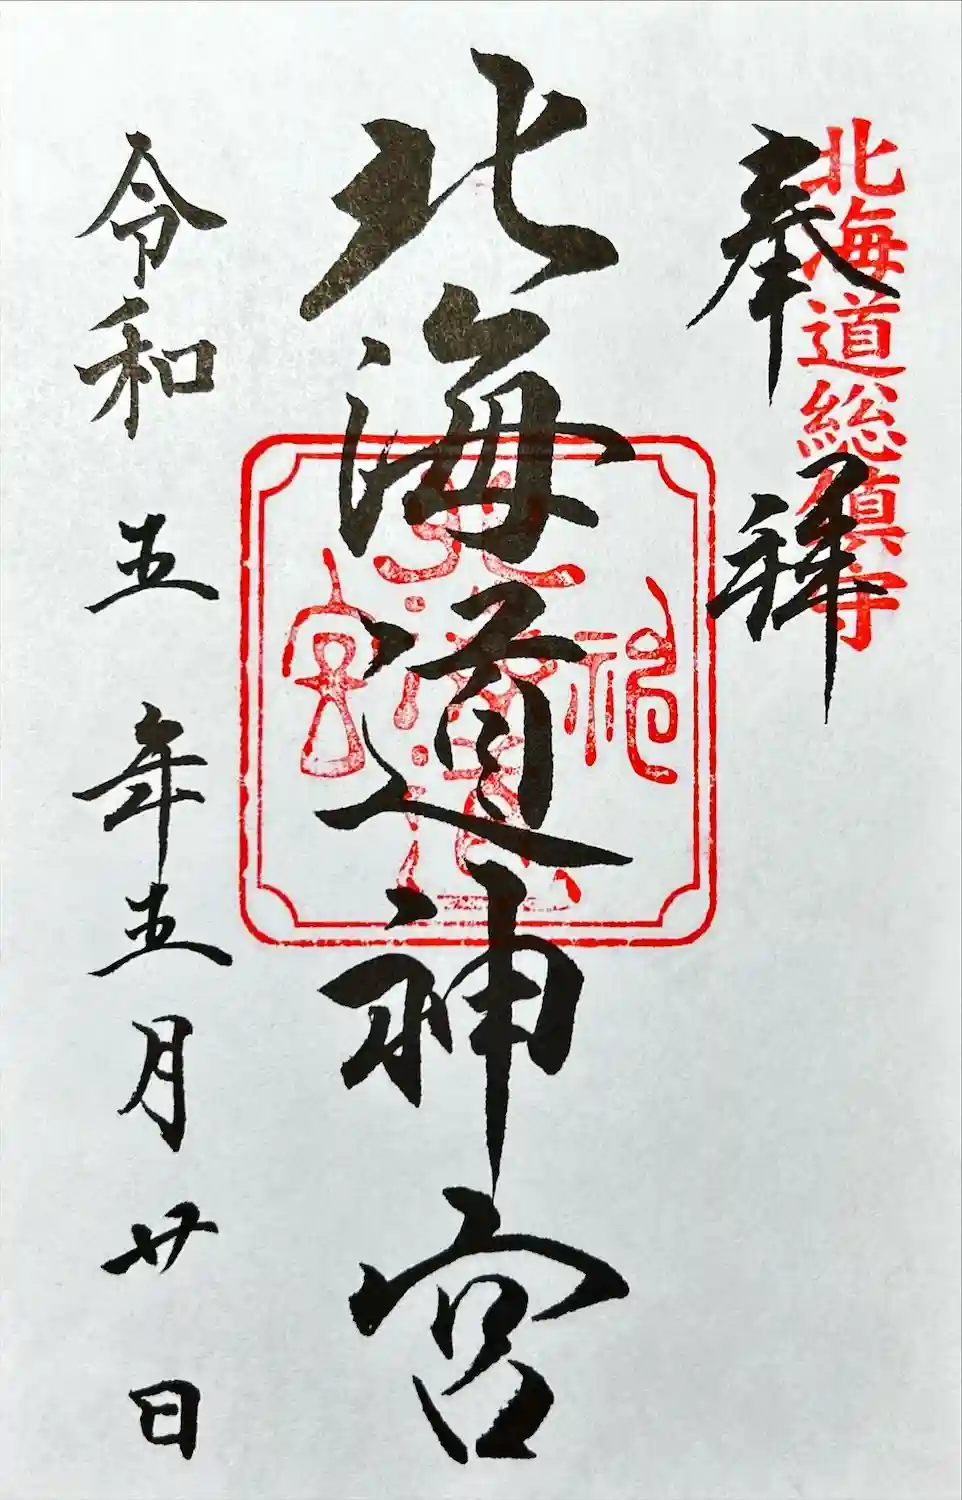 北海道総鎮守
奉拝
北海道神宮
令和五年五月廿日